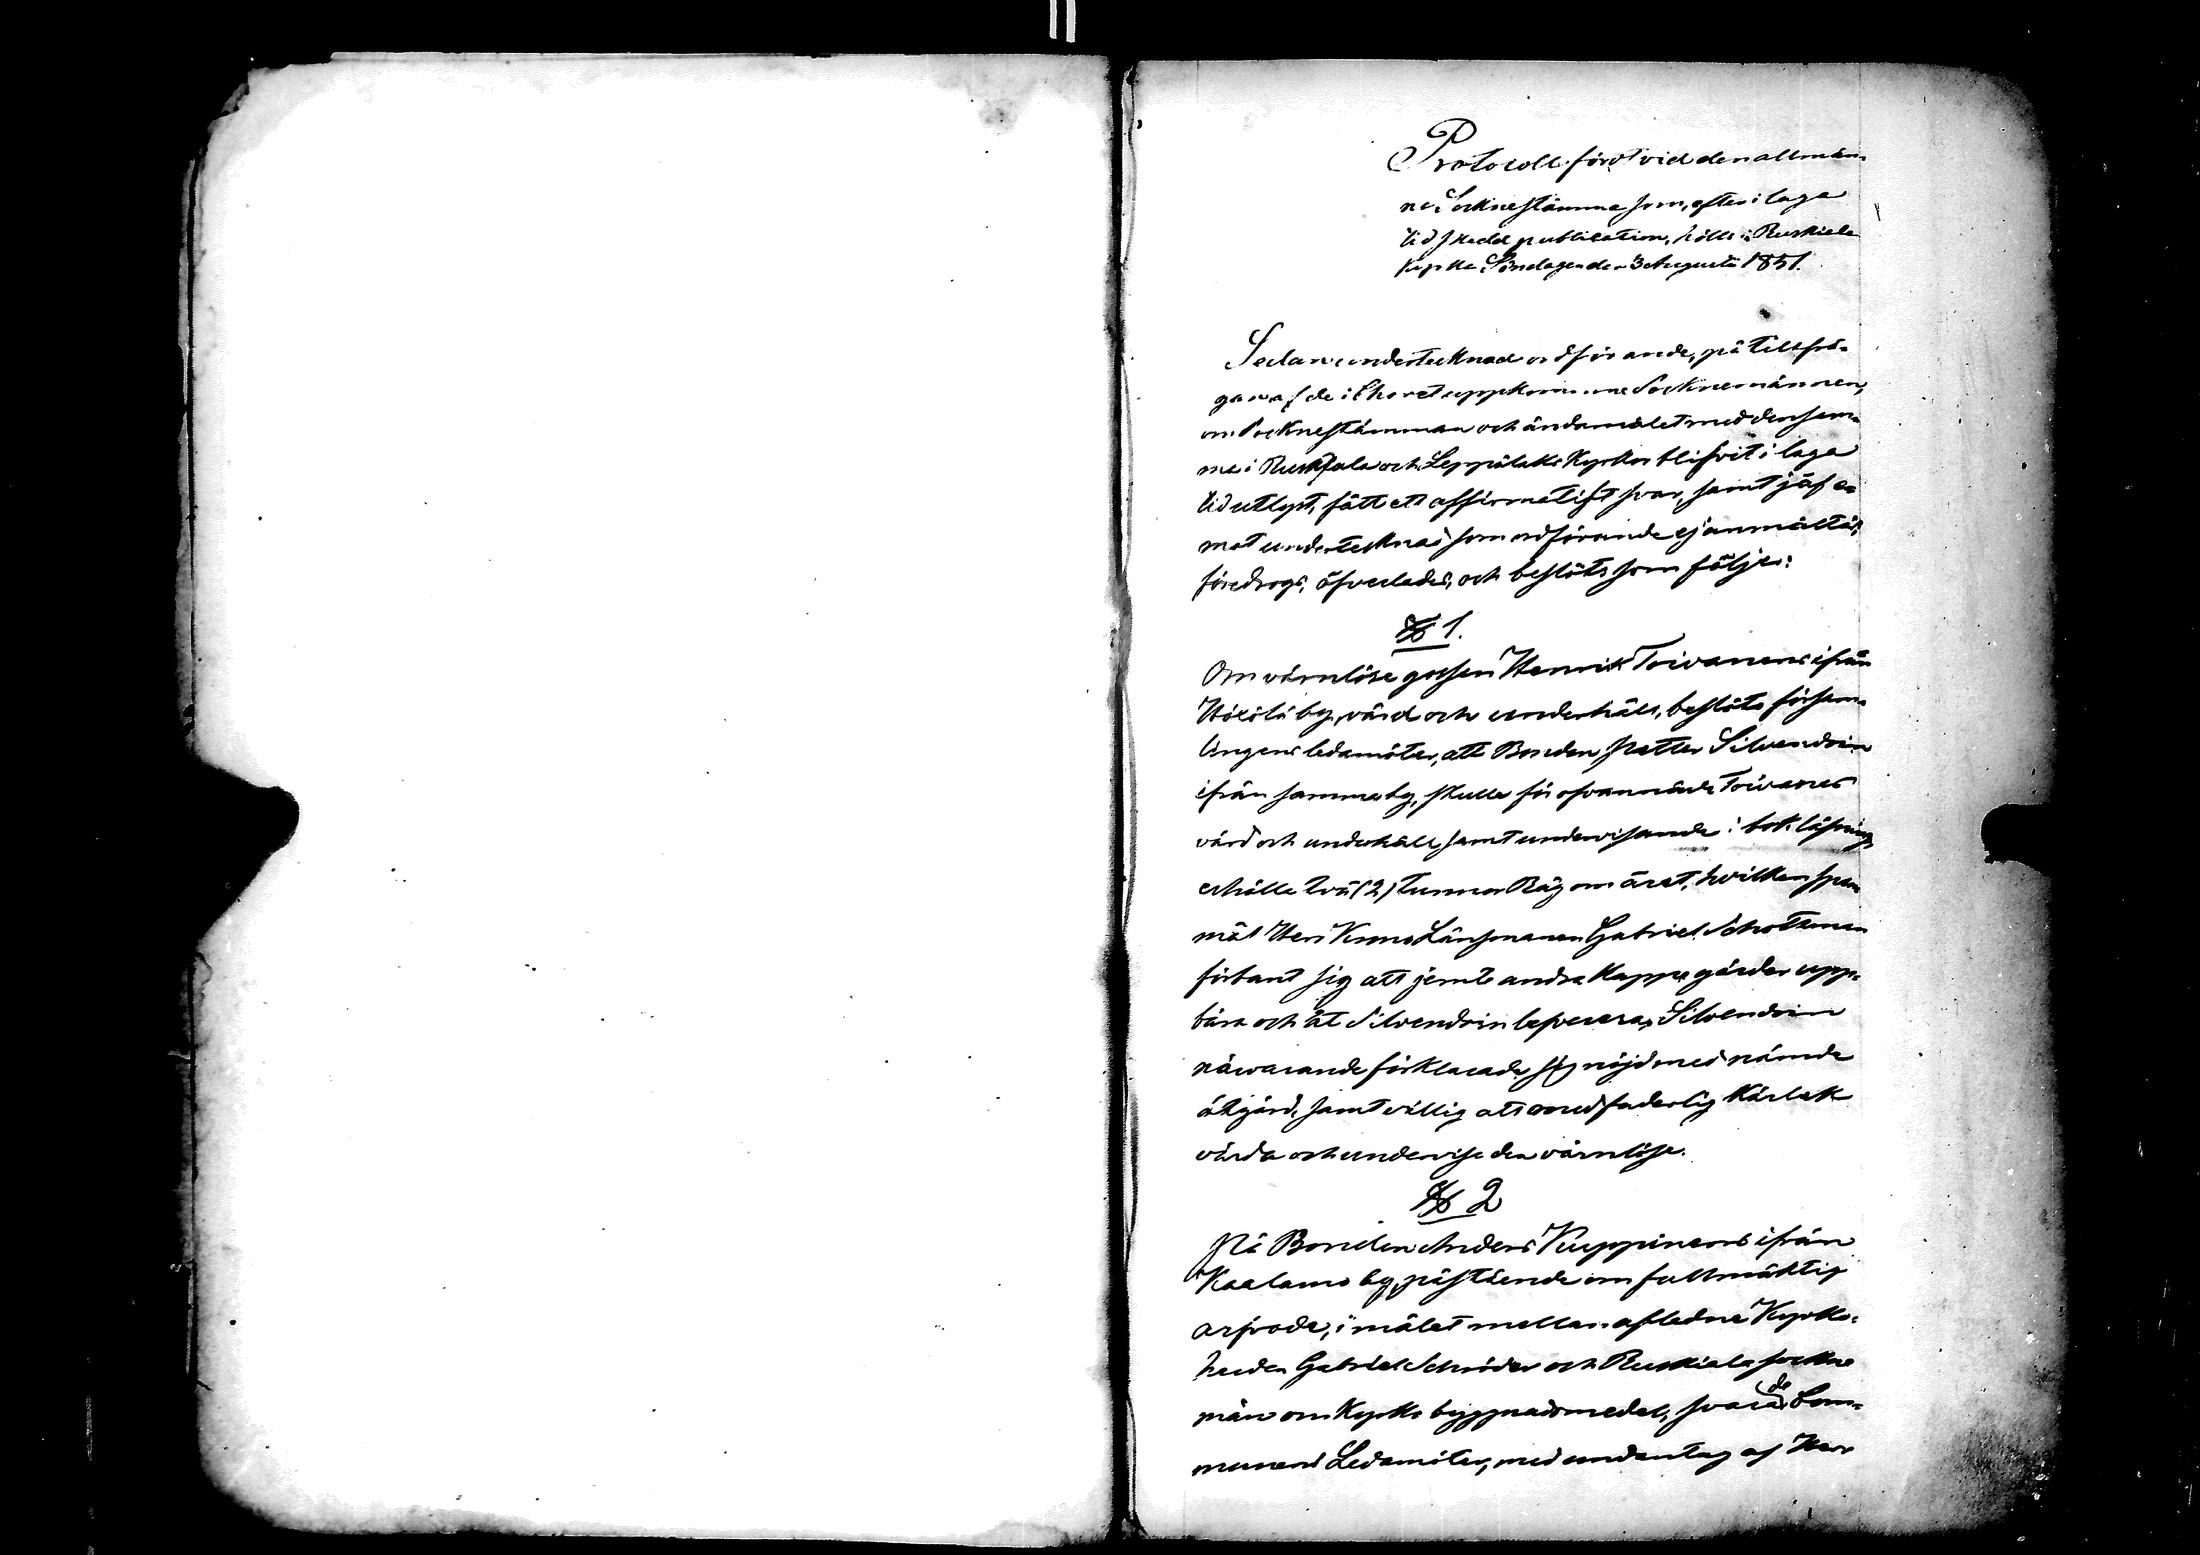 Protocoll fördt vid den allmän-
na Socknestämma som, efter i laga
tid skedd publication, hölls i Ruskiala
Kyrka Söndagen den 3 Augusti 1851.
Sedan undertecknad ordförande, på tillfrå-
gan af de i Choret uppkomne Socknemännen,
om Socknestämman och ändamålet med densam-
ma i Ruskjala och Leppälaks Kyrkor blifvit i laga
tid utlyst, fått ett affirmatift svar, samt jäf e-
mot undertecknad som ordförande ej anmältes,
föredrogs, öfverlades, och beslöts som följer:
§ 1.
Om värnlöse gossen Henrik Toivanens ifrån
Höölä by, vård och underhåll, beslöts försam-
lingens ledamöter, att Bonden Petter Silvendoin
ifrån samma by, skulle för ofvannämde Toivanes
vård och underhåll samt undervisande i bokläsning
erhålla två (2) tunnor Råg om året, hvilken span-
mål Herr Krono Länsmannen Gabriel Schottman
förbant sig att jemte andra Kappe gärder upp-
bära och åt Silvendoin leverera, Silvendoin
närvarande förklarade sig nöjd med nämde
åtgärd, samt villig att med faderlig Kärlek
vårda och undervisa den värnlöse.
§ 2
På Bonden Anders Kuppinens ifrån
Kaalamo by, påstående om fullmäktig
arfvode, i målet mellan afledne Kyrko-
herden Gabriel Schröder och Ruskiala sockne
män om Kyrko byggnadsmedel, svarade Com-
munens Ledamöter, med undantag af Herr